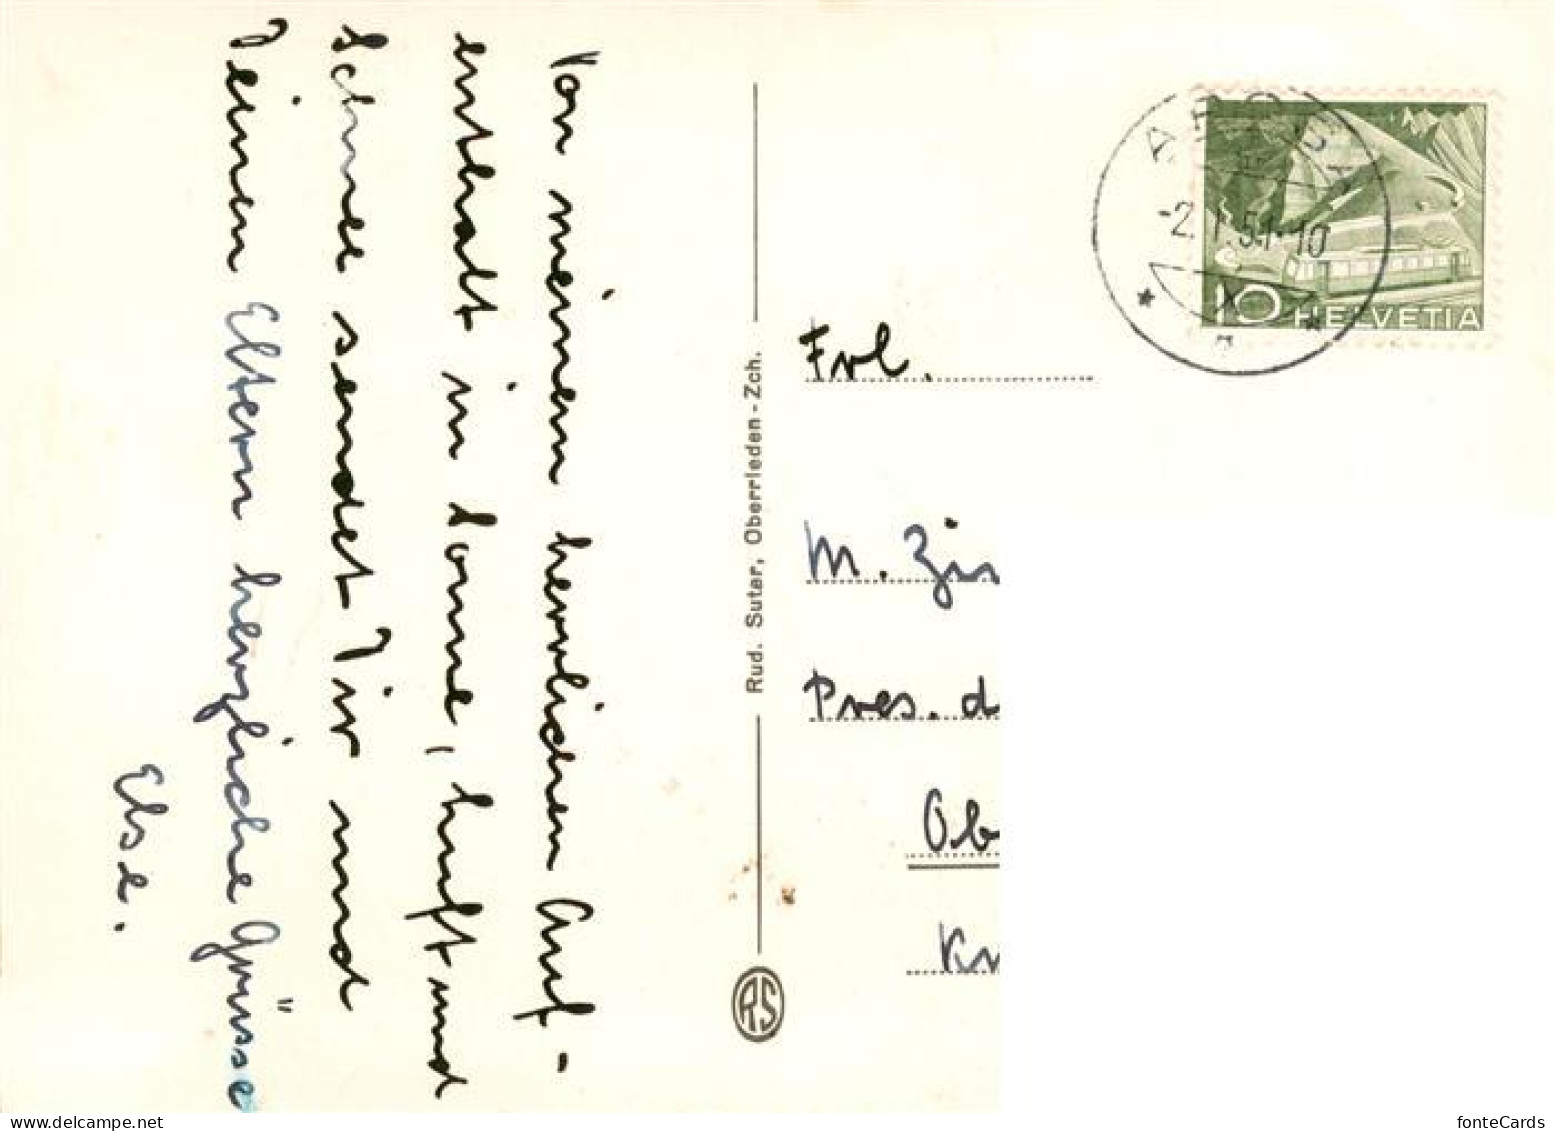 Von meinem herrlichen Auf-
enthalt in Sonne, Luft und
Schnee sendet Dir und
Deinen Eltern herzliche Grüsse
Else.
Rud. Suter, Oberrieden - Zch.
RS
-2. 1. 51-10
10 HELVETIA
Frl.
M. Zin
Pres. d
Ob
fonteCards
www.delcampe.net